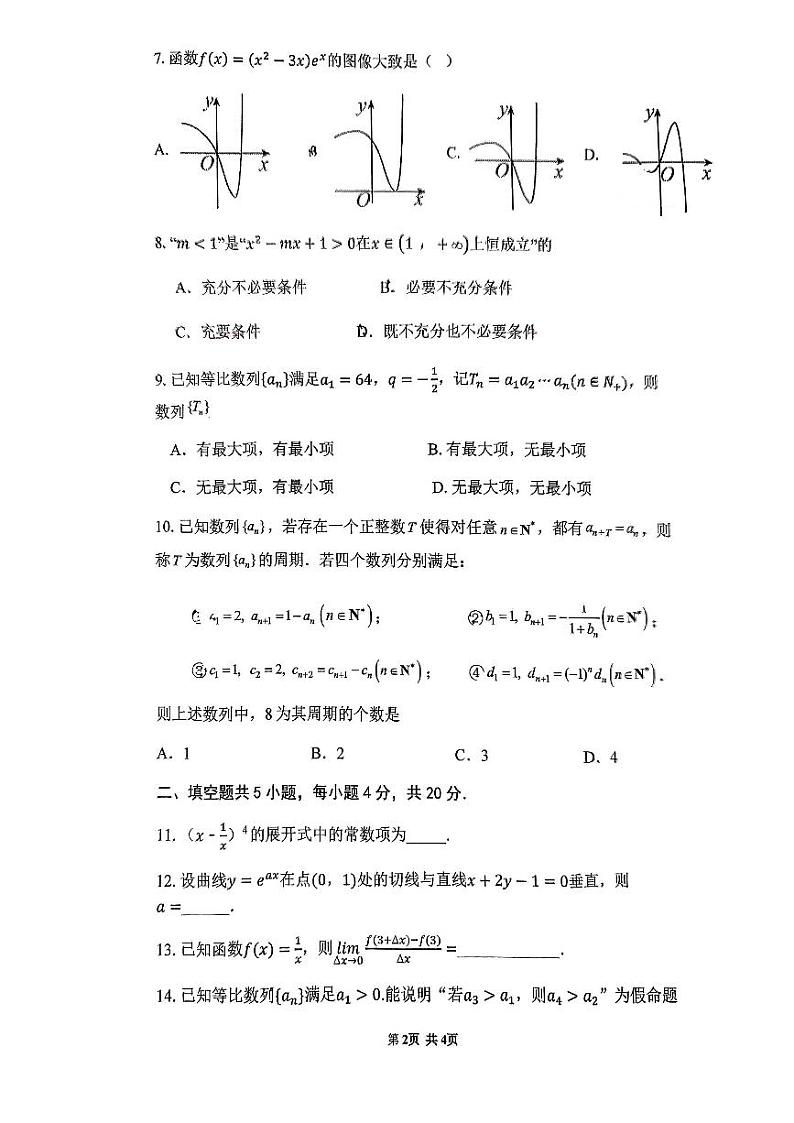 7. 函数f(x) = (x² − 3x)eˣ的图像大致是（ ）
A. y O x y O x C. y O x D. y O x
8、“m < 1”是“x² − mx + 1 > 0在x ∈ (1 ， +∞)上恒成立”的
A、充分不必要条件 B．必要不充分条件
C、充要条件 D．既不充分也不必要条件
9. 已知等比数列{aₙ}满足a₁ = 64，q = −1/2，记Tₙ = a₁a₂⋯aₙ(n ∈ N₊)，则
数列{Tₙ}
A．有最大项，有最小项 B. 有最大项，无最小项
C．无最大项，有最小项 D. 无最大项，无最小项
10. 已知数列{aₙ}，若存在一个正整数T使得对任意n∈N*，都有aₙ₊T=aₙ，则
称T为数列{aₙ}的周期．若四个数列分别满足：
₁=2, aₙ₊₁=1−aₙ (n∈N*)； ②b₁=1, bₙ₊₁=−1/(1+bₙ)(n∈N*)；
③c₁=1, c₂=2, cₙ₊₂=cₙ₊₁−cₙ(n∈N*)； ④d₁=1, dₙ₊₁=(−1)ⁿdₙ(n∈N*)．
则上述数列中，8为其周期的个数是
A．1 B．2 C．3 D、4
二、填空题共5小题，每小题4分，共20分．
11.（x - 1/x）⁴的展开式中的常数项为_____.
12. 设曲线y = eᵃˣ在点(0，1)处的切线与直线x + 2y − 1 = 0垂直，则
a =______.
13. 已知函数f(x) = 1/x，则lim Δx→0 (f(3+Δx)−f(3))/Δx =_____________.
14. 已知等比数列{aₙ}满足a₁ > 0.能说明“若a₃ > a₁，则a₄ > a₂”为假命题
第2页 共4页